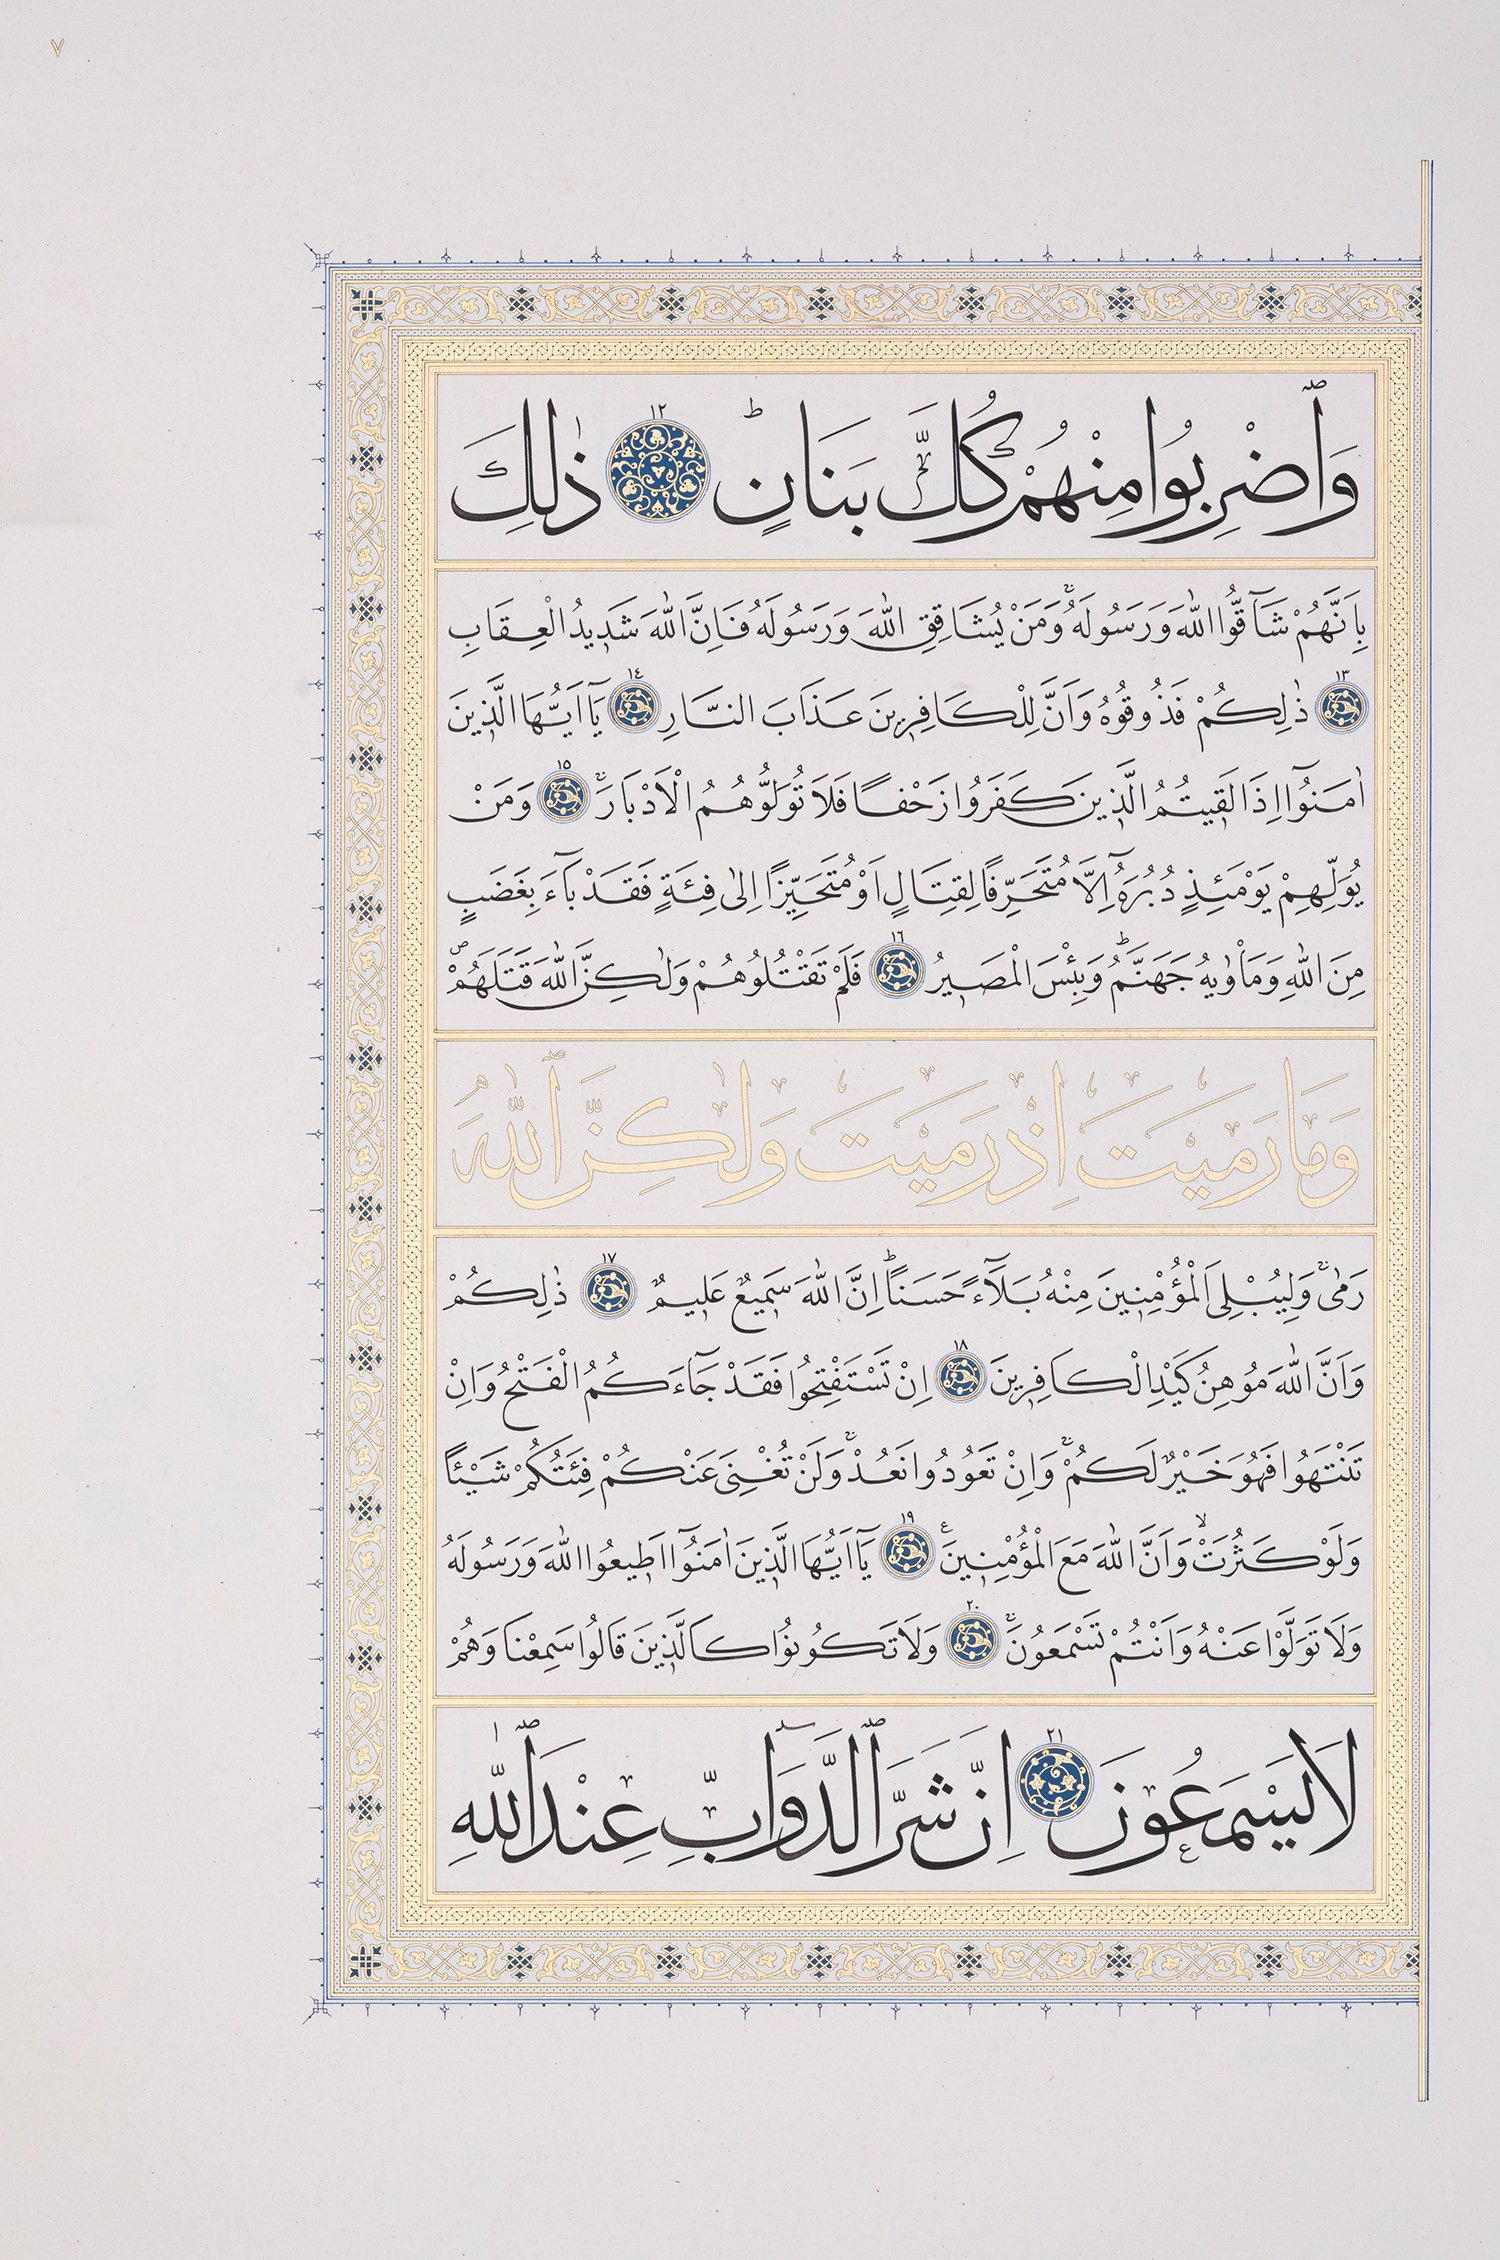 ٧
وَٱضْرِبُوا مِنْهُمْ كُلَّ بَنَانٍۜ ١٢ ذٰلِكَ
بِاَنَّهُمْ شَٓاقُّوا اللّٰهَ وَرَسُولَهُۚ وَمَنْ يُشَاقِقِ اللّٰهَ وَرَسُولَهُ فَاِنَّ اللّٰهَ شَدٖيدُ الْعِقَابِ
١٣ ذٰلِكُمْ فَذُوقُوهُ وَاَنَّ لِلْكَافِرٖينَ عَذَابَ النَّارِ ١٤ يَٓا اَيُّهَا الَّذٖينَ
اٰمَنُٓوا اِذَا لَقٖيتُمُ الَّذٖينَ كَفَرُوا زَحْفًا فَلَا تُوَلُّوهُمُ الْاَدْبَارَۚ ١٥ وَمَنْ
يُوَلِّهِمْ يَوْمَئِذٍ دُبُرَهُٓ اِلَّا مُتَحَرِّفًا لِقِتَالٍ اَوْ مُتَحَيِّزًا اِلٰى فِئَةٍ فَقَدْ بَٓاءَ بِغَضَبٍ
مِنَ اللّٰهِ وَمَاْوٰيهُ جَهَنَّمُۜ وَبِئْسَ الْمَصٖيرُ ١٦ فَلَمْ تَقْتُلُوهُمْ وَلٰكِنَّ اللّٰهَ قَتَلَهُمْۖ
وَمَا رَمَيْتَ اِذْ رَمَيْتَ وَلٰكِنَّ ٱللّٰهَ
رَمٰىۚ وَلِيُبْلِىَ الْمُؤْمِنٖينَ مِنْهُ بَلَٓاءً حَسَنًاۜ اِنَّ اللّٰهَ سَمٖيعٌ عَلٖيمٌ ١٧ ذٰلِكُمْ
وَاَنَّ اللّٰهَ مُوهِنُ كَيْدِ الْكَافِرٖينَ ١٨ اِنْ تَسْتَفْتِحُوا فَقَدْ جَٓاءَكُمُ الْفَتْحُ وَاِنْ
تَنْتَهُوا فَهُوَ خَيْرٌ لَكُمْۚ وَاِنْ تَعُودُوا نَعُدْۚ وَلَنْ تُغْنِىَ عَنْكُمْ فِئَتُكُمْ شَيْئًا
وَلَوْ كَثُرَتْۙ وَاَنَّ اللّٰهَ مَعَ الْمُؤْمِنٖينَ ١٩ يَٓا اَيُّهَا الَّذٖينَ اٰمَنُٓوا اَطٖيعُوا اللّٰهَ وَرَسُولَهُ
وَلَا تَوَلَّوْا عَنْهُ وَاَنْتُمْ تَسْمَعُونَۚ ٢٠ وَلَا تَكُونُوا كَالَّذٖينَ قَالُوا سَمِعْنَا وَهُمْ
لَا يَسْمَعُونَ ٢١ اِنَّ شَرَّ ٱلدَّوَٓابِّ عِنْدَ ٱللّٰهِ